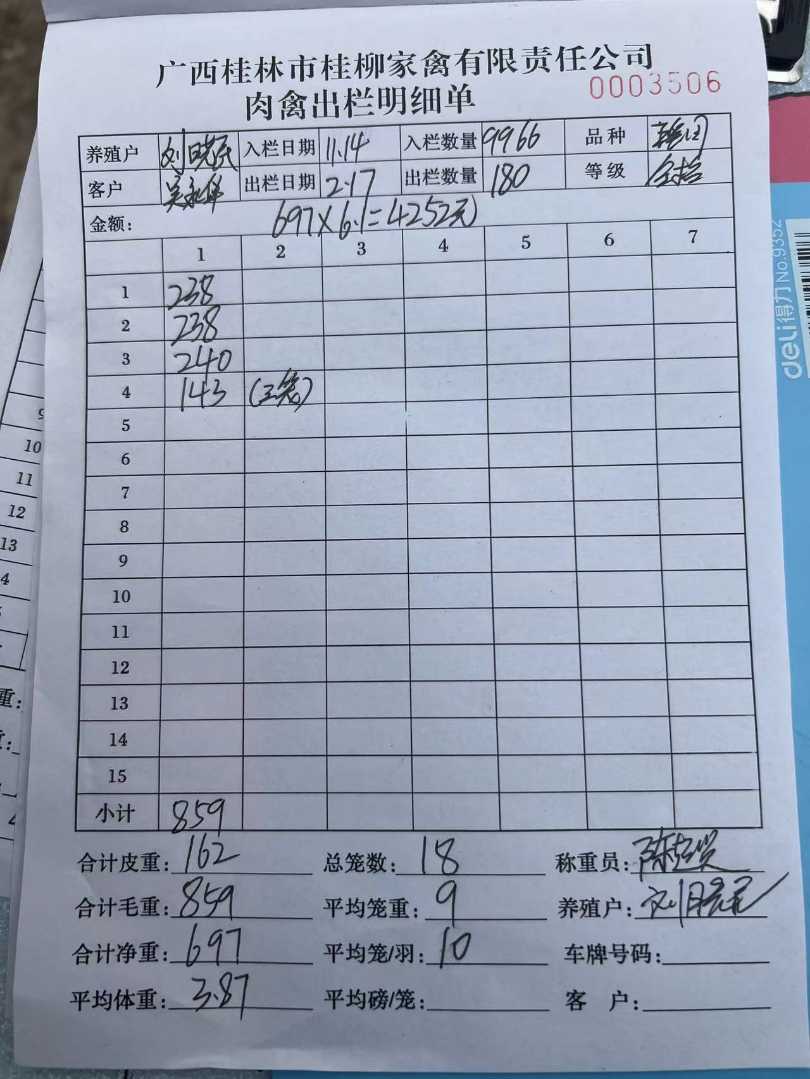 广西桂林市桂柳家禽有限责任公司
肉禽出栏明细单 0003506
养殖户 刘晓民 入栏日期 11.14 入栏数量 9966 品种
客户 吴永伟 出栏日期 2.17 出栏数量 180 等级
金额: 697×6.1=4252元
1 2 3 4 5 6 7
1 238
2 238
3 240
4 143 (三笼)
5
6
7
8
9
10
11
12
13
14
15
小计 859
合计皮重: 162 总笼数: 18 称重员:
合计毛重: 859 平均笼重: 9 养殖户: 刘晓民
合计净重: 697 平均笼/羽: 10 车牌号码:
平均体重: 3.87 平均磅/笼: 客户:
deli得力 No.9352
9
10
11
12
13